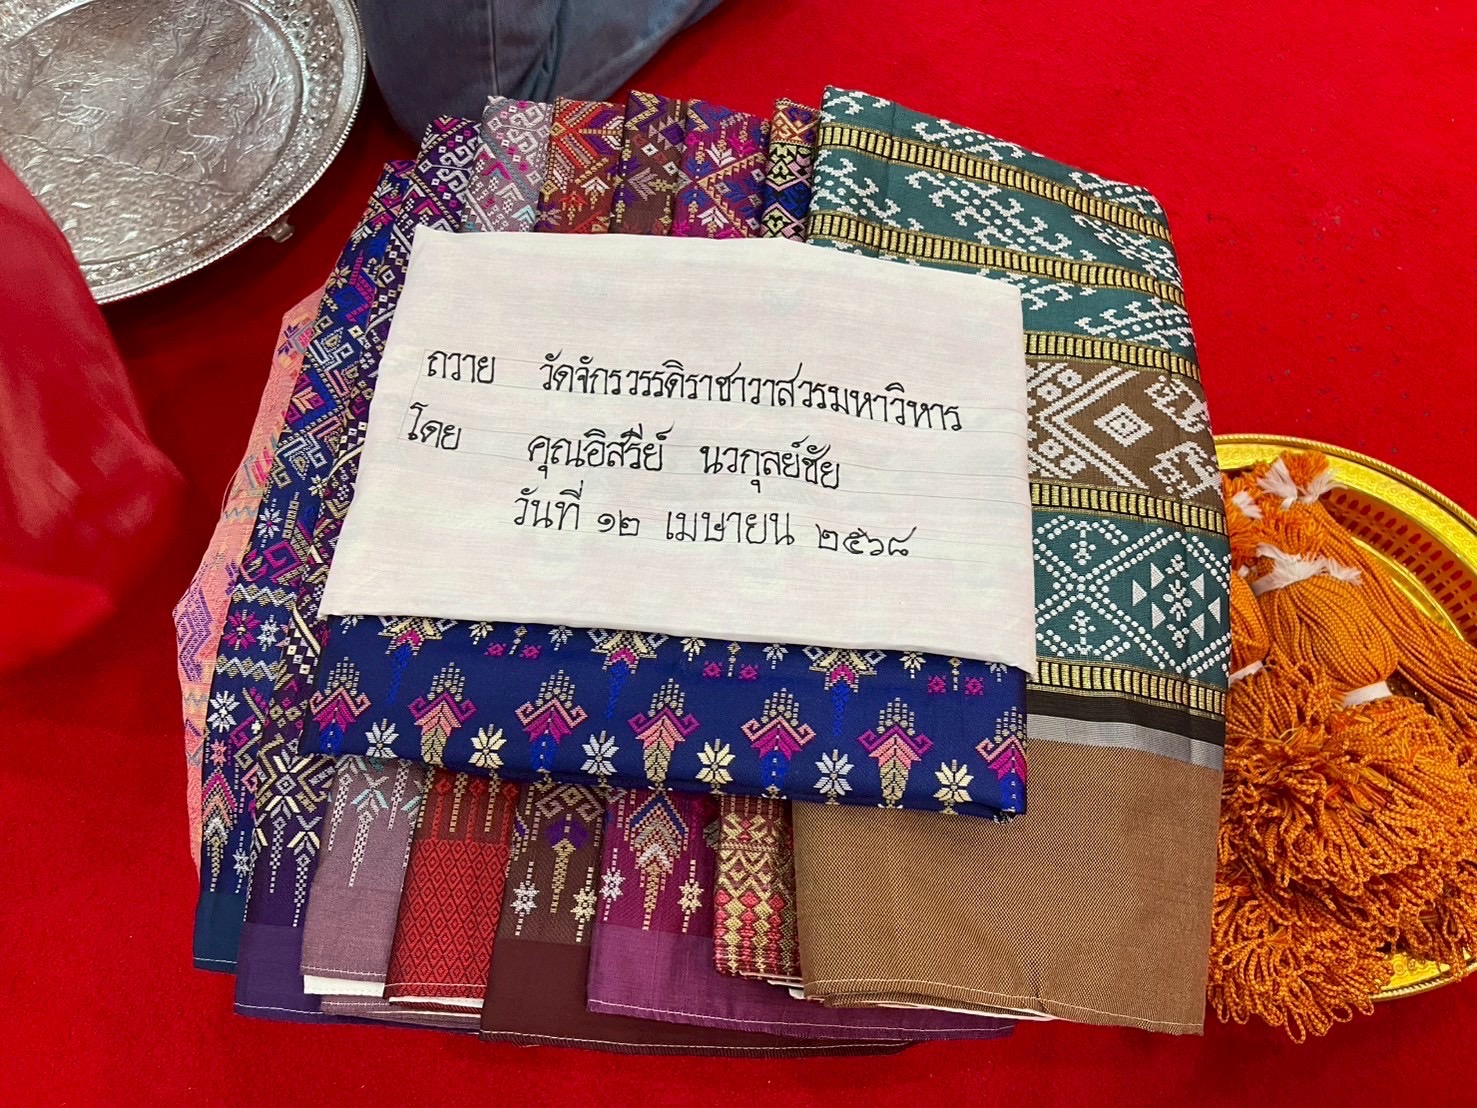 ถวาย วัดจักรวรรดิราชาวาสวรมหาวิหาร
โดย คุณอิสรีย์ นวกุลย์ชัย
วันที่ ๑๒ เมษายน ๒๕๖๘